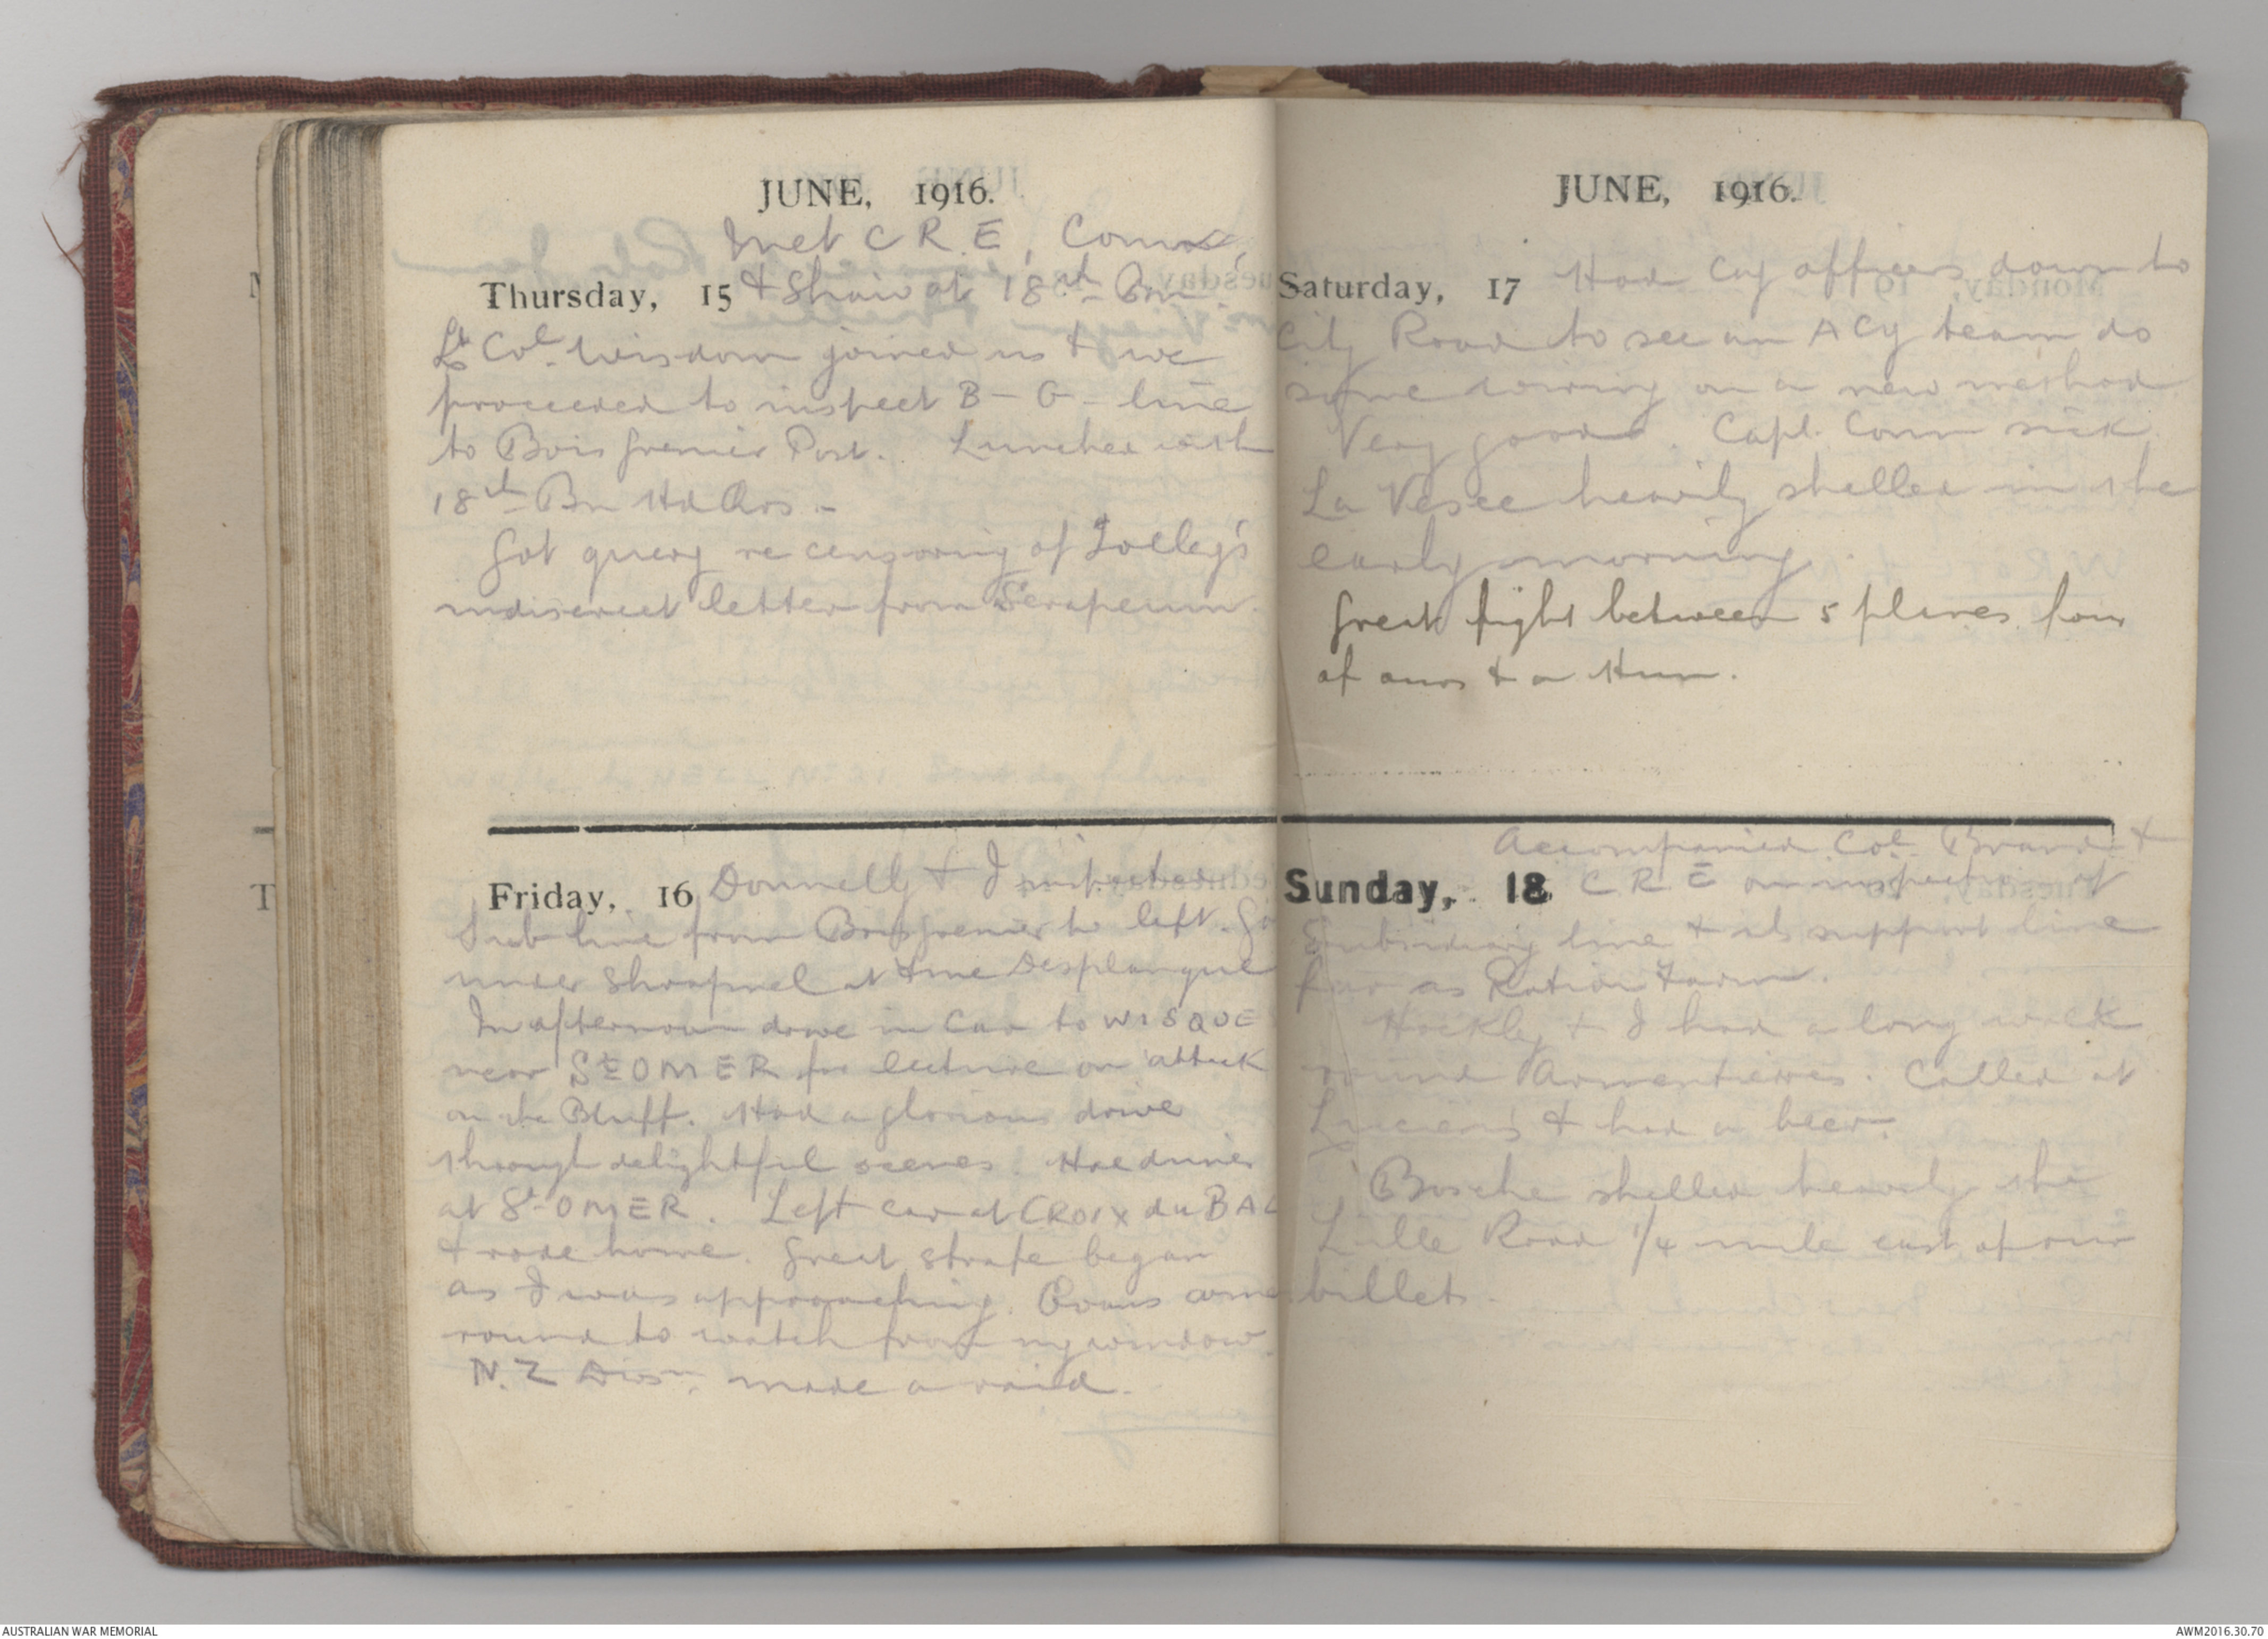 JUNE, 1916.
Met C R.E, Conn
Thursday, 15 & Shaw at 18th Bn.
Lt Col. Wisdom joined us & we
proceeded to inspect B-G- line
to Bois Grenier Post. Lunched with
18th Bn Hd Qrs.-
Got query re censoring of Jolley's
indiscreet letter from Serapeum.
Friday, 16 Donnelly & I inspected
Sub line from Bois Grenier to left. Got
under Shrapnel at Fme Desplanque
In afternoon drove in Car to WISQUE
near St OMER for lecture on attack
on the Bluff. Had a glorious drive
through delightful scenes. Had dinner
at St OMER. Left car at CROIX du BAC
& rode home. Great strafe began
as I was approaching. Evans came
round to watch from my window.
N.Z Divn. made a raid.
JUNE, 1916.
Saturday, 17 Had Coy officers down to
City Road to see an A Coy team do
some wiring on a new method
Very good. Capt. Conn sick
La Vesee heavily shelled in the
early morning.
Great fight between 5 planes four
of ours & a Hun.
Accompanied Col. Brand &
Sunday, 18 C R E on inspection of
Subsidiary line & its support line
far as Ration Farm.
Hockly & I had a long walk
round Armentieres. Called at
Lucien's & had a beer.
Bosche shelled heavily the
Lille Road 1/4 mile east of our
billet.
AUSTRALIAN WAR MEMORIAL
AWM2016.30.70